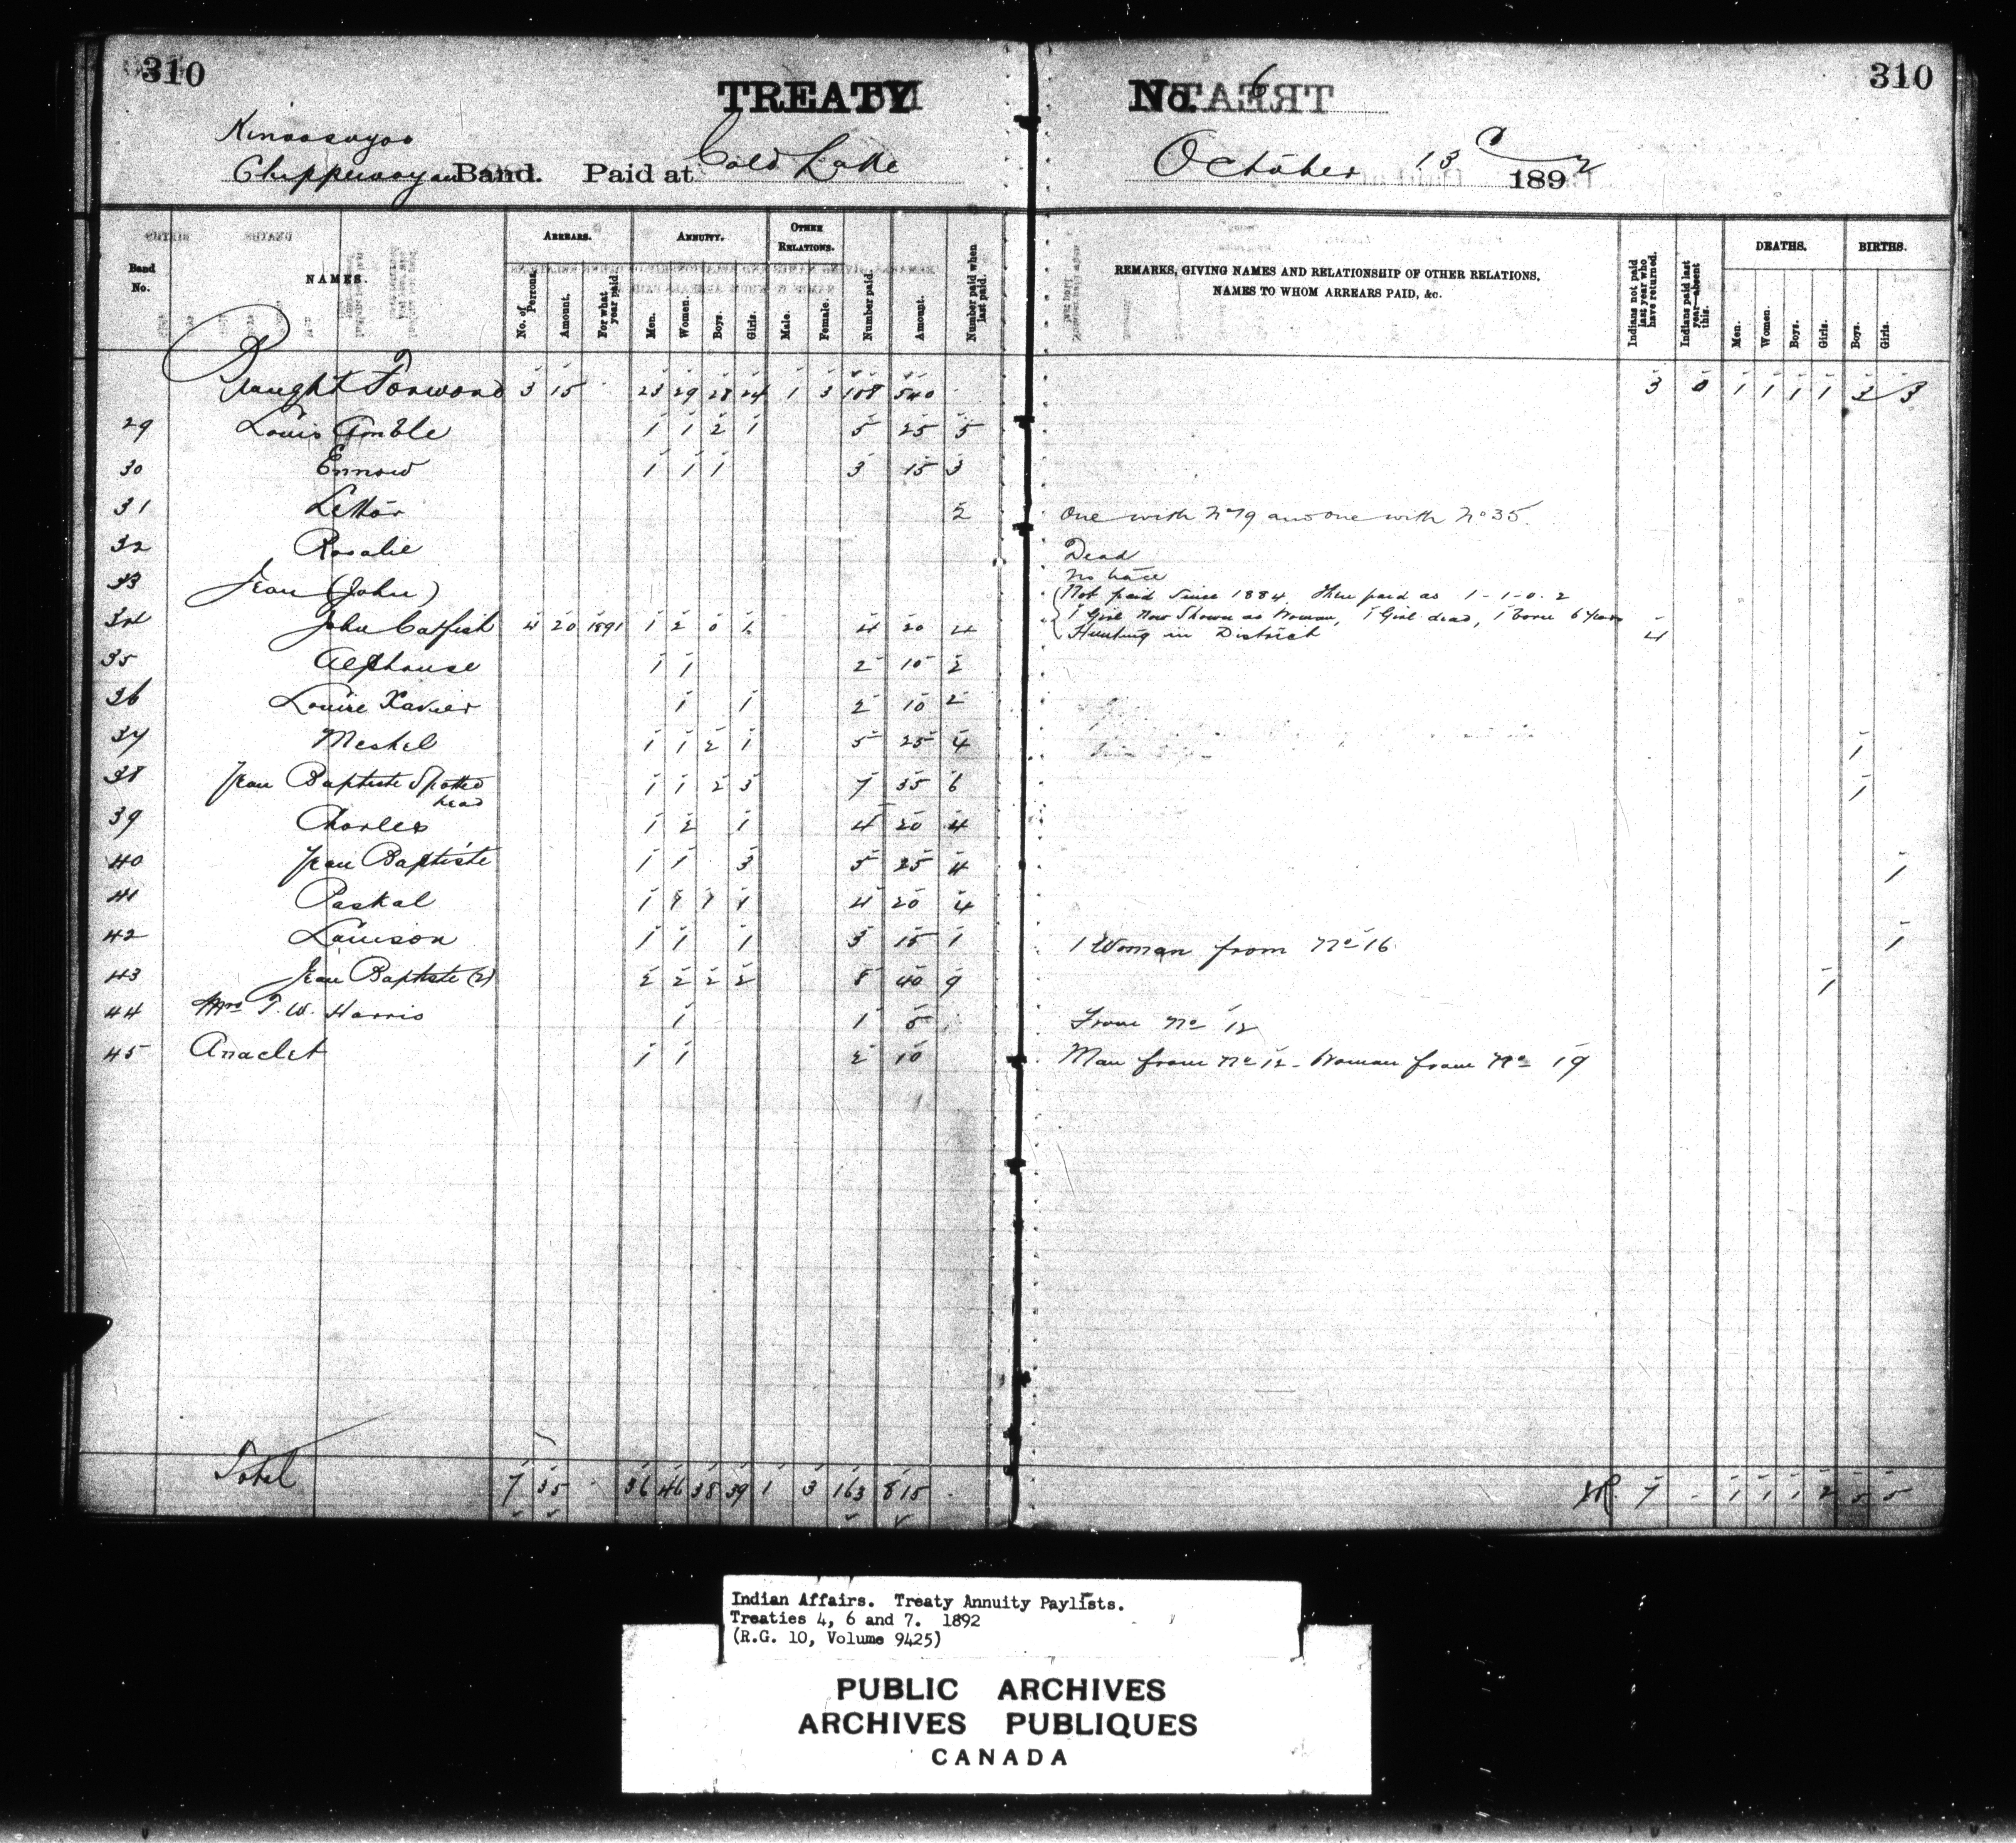 310
TREATY
No. 6
310
Kinoosayoo
Chippewayan Band. Paid at Cold Lake
October 13 1892
Band No.
NAMES.
ARREARS.
No. of Persons.
Amount.
For what year paid.
ANNUITY.
Men.
Women.
Boys.
Girls.
OTHER RELATIONS.
Male.
Female.
Number paid.
Amount.
Number paid when last paid.
REMARKS, GIVING NAMES AND RELATIONSHIP OF OTHER RELATIONS,
NAMES TO WHOM ARREARS PAID, &c.
Indians not paid last year who have returned.
Indians paid last year—absent this.
DEATHS.
Men.
Women.
Boys.
Girls.
BIRTHS.
Boys.
Girls.
Brought Forward 3 15 23 29 28 24 1 3 108 540 3 0 1 1 1 1 3 3
29 Louis 1 1 2 1 5 25 5
30 Ennow 1 1 1 3 15 3
31 2 One with No 19 and one with No 35.
32 Rosalie Dead
33 Jean (John) No trace
34 John Catfish 4 20 1891 1 2 0 1 4 20 4 4
Not paid since 1884. Then paid as 1-1-0-2
1 Girl now shown as Woman, 1 Girl dead, 1 born 6 years
Hunting in District
35 Alphonse 1 1 2 10 2
36 Louise Xavier 1 1 2 10 2
37 Meshel 1 1 2 1 5 25 4 1
38 Jean Baptiste Spotted head 1 1 2 3 7 35 6 1
39 Charles 1 2 1 4 20 4
40 Jean Baptiste 1 1 3 5 25 4 1
41 Paskal 1 1 1 1 4 20 4
42 Louison 1 1 1 3 15 1 1 Woman from No 16 1
43 Jean Baptiste (2) 2 2 2 2 8 40 9 1
44 Mrs T. W. Harris 1 1 5 From No 12
45 Anaclet 1 1 2 10 Man from No 12 - Woman from No 19
Total 7 35 36 46 38 39 1 3 163 815 7 1 1 1 2 5 5
Indian Affairs. Treaty Annuity Paylists.
Treaties 4, 6 and 7. 1892
(R.G. 10, Volume 9425)
PUBLIC ARCHIVES
ARCHIVES PUBLIQUES
CANADA